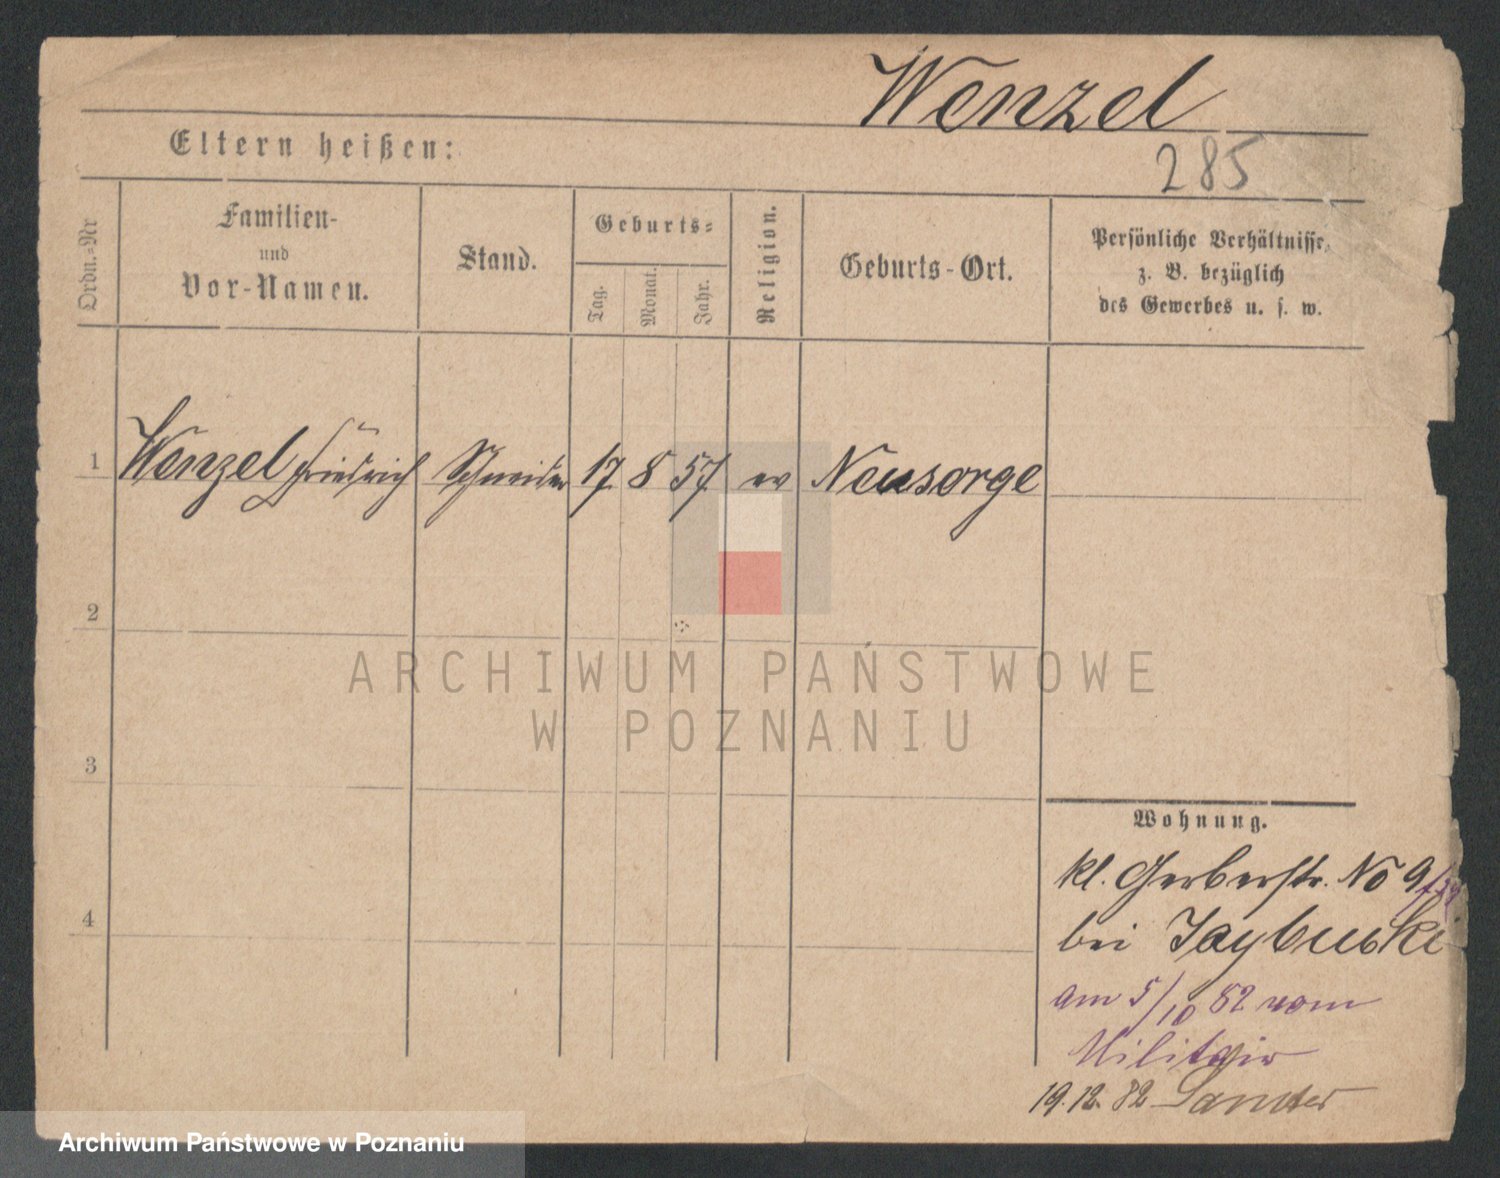 Wenzel
285
Eltern heißen:
Ordn.=Nr
Familien-
und
Vor-Namen.
Stand.
Geburts=
Tag.
Monat.
Jahr.
Religion.
Geburts-Ort.
Persönliche Verhältnisse,
z. B. bezüglich
des Gewerbes u. s. w.
1 Wenzel Friedrich Schneider 17. 8 57. ev Neusorge
2
3
4
ARCHIWUM PAŃSTWOWE
W POZNANIU
Wohnung.
kl. Gerberstr. No 9
bei
am 5/10 82 vom
Militair
19.12.82
Archiwum Państwowe w Poznaniu